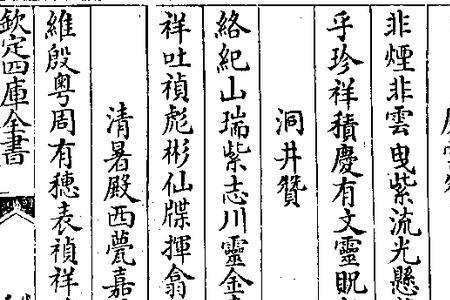 非煙非雲曳紫流光懸
乎珍祥積慶有文靈貺
洞井贊
絡紀山瑞紫志川靈金
祥吐禎彪彬仙牒揮翕
清暑殿西甍嘉
維殷粵周有穗表禎祥
欽定四庫全書